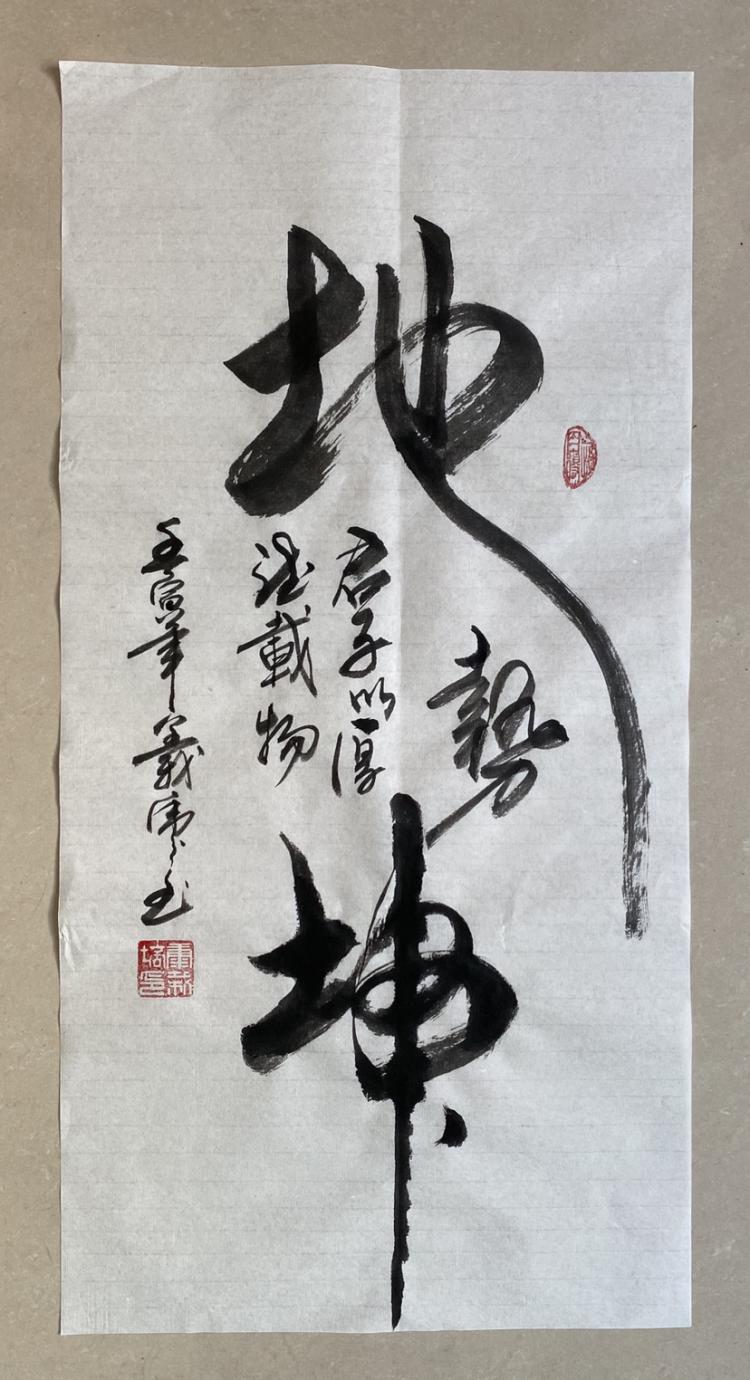 地勢坤
君子以厚
德載物
壬寅年義